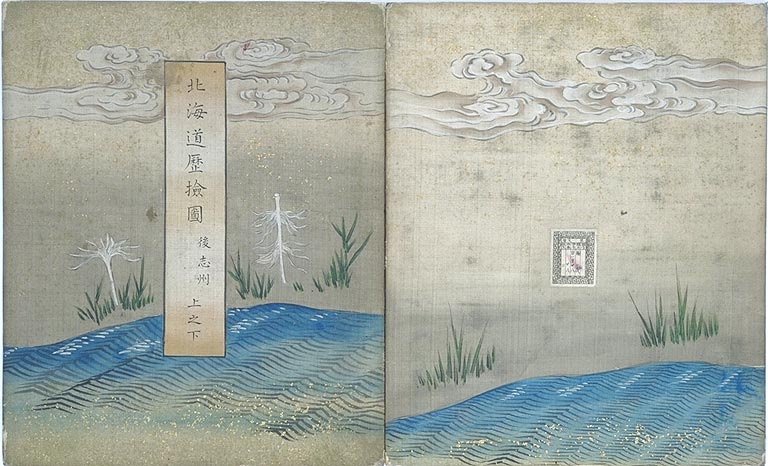 北海道歴撿圖
後志州
上之下